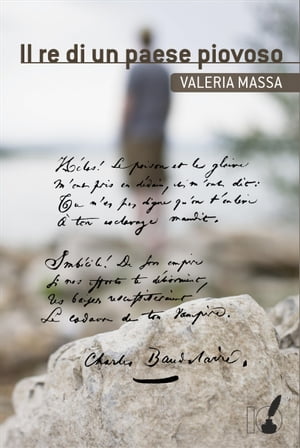 Il re di un paese piovoso
VALERIA MASSA
Hélas! Le poison et le glaive
M'ont pris en dédain, et m'ont dit:
Tu n'es pas digne qu'on t'enlève
À ton esclavage maudit.
Imbécile! De son empire
Si nos efforts te délivraient,
Tes baisers ressusciteraient
Le cadavre de ton Vampire.
Charles Baudelaire.